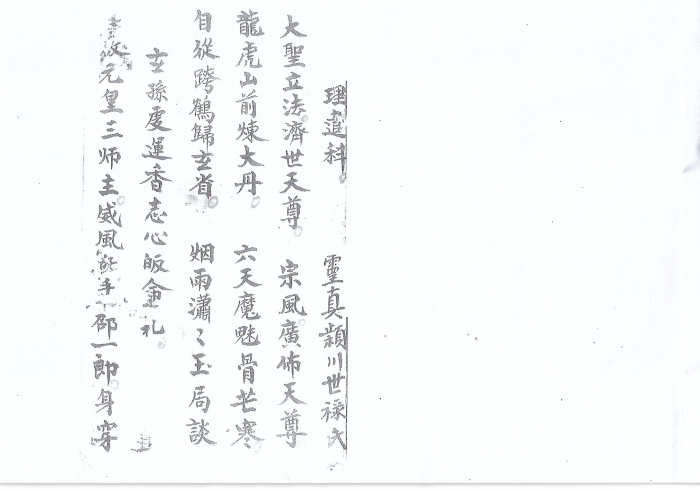 理進科 靈真 潁川世祿氏
大聖立法濟世天尊 宗風廣佈天尊
龍虎山前煉大丹 六天魔魅骨芒寒
自從跨鶴歸玄省 烟雨瀟〻玉局談
玄孫虔運香志心皈命礼
元皇三师主威風 手 邵一郎身穿